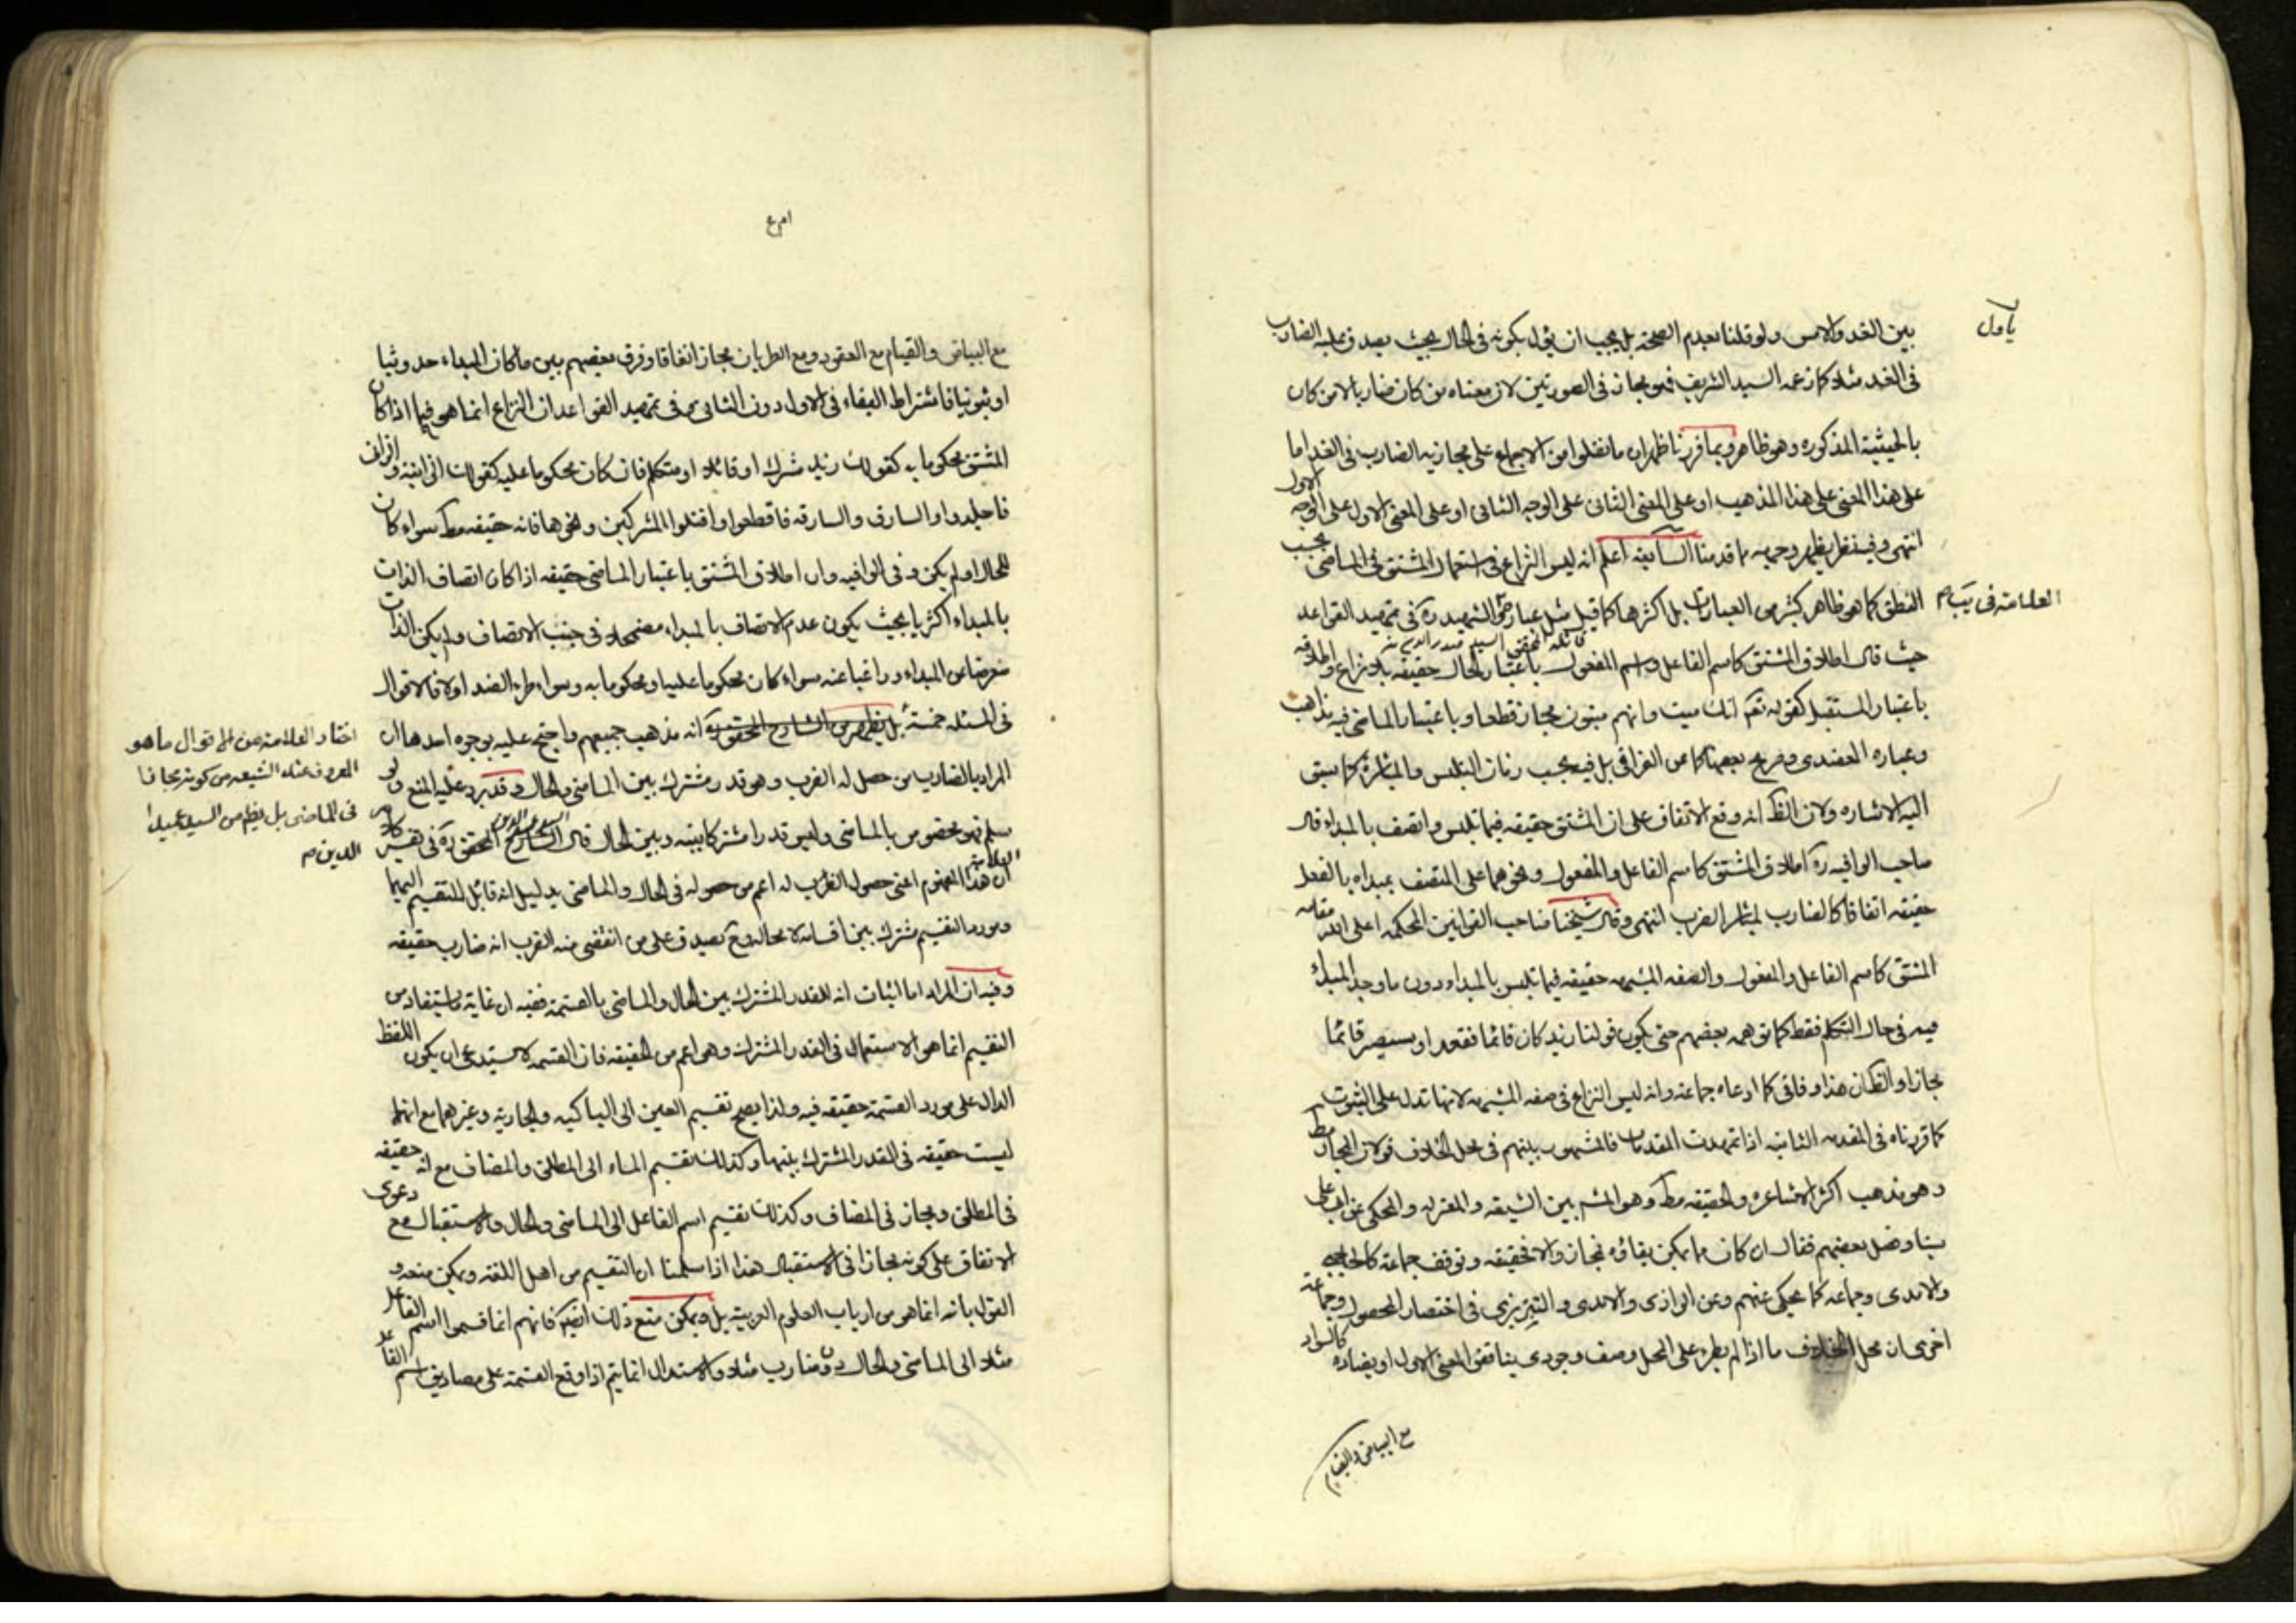 بين الغد والامس ولو قلنا بعدم الصحة بل يجب ان يؤل بكونه فى الحال بحيث يصدق عليه الضارب
فى الغد مثلا كما زعمه السيد الشريف فهو مجاز فى الصورتين لان معناه من كان ضاربا لا من كان
بالحيثية المذكوره وهو ظاهر وبما قررنا ظهر ان ما نقلوا من الاجماع على مجازيه الضارب فى الغد اما
على هذا المعنى على هذا المذهب او على المعنى الثانى على الوجه الثانى او على المعنى الاول على الوجه الاول
انتهى وفيه نظر يظهر وجهه مما قدمنا السابقه اعلم انه ليس النزاع فى استعمال المشتق فى الماضى بحسب
النطق كما هو ظاهر كثير من العبارات بل اكثرها كما قيل مثل عبارة الشهيد ره فى تمهيد القواعد
حيث قال اطلاق المشتق كاسم الفاعل واسم المفعول باعتبار الحال حقيقه بلا نزاع واطلاقه
باعتبار المستقبل كقوله تعم انك ميت وانهم ميتون مجاز قطعا وباعتبار الماضى فيه مذاهب
وعباره العضدى وصريح بعضها كما عن القرافى بل فيه بحسب زمان التلبس والمباشرة كما سبق
اليه الاشاره ولان الظ انه وقع الاتفاق على ان المشتق حقيقه فيما تلبس واتصف بالمبداء قال
صاحب الوافيه ره اطلاق المشتق كاسم الفاعل والمفعول ونحوهما على المتصف بمبداه بالفعل
حقيقه اتفاقا كالضارب لمباشر الضرب انتهى وقال شيخنا صاحب القوانين المحكمه اعلى الله مقامه
المشتق كاسم الفاعل والمفعول والصفه المشبهه حقيقه فيما تلبس بالمبداء دون ما وجد المبدء
فيه فى حال التكلم فقط كما توهمه بعضهم حتى يكون قولنا زيد كان قائما فقعد او سيصير قائما
مجازا والظ ان هذا وفاقى كما ادعاه جماعة وانه ليس النزاع فى صفه المشبهه لانها تدل على الثبوت
كما قررناه فى المقدمه الثانيه اذا تمهدت المقدمات فالمشهور بينهم فى محل الخلاف قولان المجاز مط
وهو مذهب اكثر الاشاعره والحقيقه مط وهو المش بين الشيعه والمعتزله والمحكى عن ابى على
سينا وفصل بعضهم فقال ان كان مما يمكن بقاؤه فمجاز والا فحقيقه وتوقف جماعة كالحاجبى
والامدى وجماعه كما يحكى عنهم وعن الرازى والامدى والتبريزى فى اختصار المحصول وجماعة
اخرى ان محل الخلاف ما اذا لم يطرء على المحل وصف وجودى يناقض المعنى الاول او يضاده كالسواد
مع البياض والقيام
العلامة فى يب
مع البياض والقيام مع العقود ومع الطريان مجاز اتفاقا وفرق بعضهم بين ما كان المبداء حدوثيا
او ثبوتيا فاشتراط البقاء فى الاول دون الثانى وفى تمهيد القواعد ان النزاع انما هو فيما اذا كان
المشتق محكوما به كقولك زيد مشرك او قاتل او متكلم فان كان محكوما عليه كقوله الزانية والزانى
فاجلدوا والسارق والسارقه فاقطعوا واقتلوا المشركين ونحوها فانه حقيقه مط سواء كان
للحال او لم يكن وفى الوافيه وان اطلاق المشتق باعتبار الماضى حقيقه اذا كان اتصاف الذات
بالمبداء اكثريا بحيث يكون عدم الاتصاف بالمبداء مضمحلا فى جنب الاتصاف ولم يكن الذات
معرضا عن المبداء وراغبا عنه سواء كان محكوما عليه او محكوما به وسواء طرء الضد اولا فالاقوال
فى المسئله خمسة بل يظهر من الشارح المحقق ره انه مذهب جميعهم واحتج عليه بوجوه احدها ان
المراد بالضارب من حصل له الضرب وهو قدر مشترك بين الماضى والحال وقد يرد عليه المنع ولو
سلم فهو مخصوص بالماضى وليس قدرا مشتركا بينه وبين الحال قال الشارح المحقق ره فى تقريره
ان هذا المفهوم اعنى حصول الضرب له اعم من حصوله فى الحال والماضى بدليل انه قابل للتقسيم اليهما
ومورد التقسيم مشترك بين اقسامه لا محالة وح يصدق على من انقضى منه الضرب انه ضارب حقيقه
وفيه ان المراد اما اثبات انه للقدر المشترك بين الحال والماضى بالقسمة ففيه ان غاية ما يستفاد من
التقسيم انما هو الاستعمال فى القدر المشترك وهو اعم من الحقيقه فان القسمه لا يستدعى ان يكون اللفظ
الدال على مورد القسمة حقيقه فيه ولذا يصح تقسيم العين الى الباكيه والجاريه وغيرهما مع انها
ليست حقيقه فى القدر المشترك بينها وكذلك تقسيم الماء الى المطلق والمضاف مع انه حقيقه
فى المطلق ومجاز فى المضاف وكذلك تقسيم اسم الفاعل الى الماضى والحال والاستقبال مع دعوى
الاتفاق على كونه مجازا فى الاستقبال هذا اذا سلمنا ان التقسيم من اهل اللغة ويمكن منعه و
القول بانه انما هو من ارباب العلوم العربيه بل ويمكن منع ذلك ايضا فانهم انما قسموا اسم الفاعل
مثلا الى الماضى والحال وضارب مثلا والاستدلال انما يتم اذا وقع القسمة على مصاديق اسم الفاعل
اختار العلامة من الاقوال ما هو
المعروف عند الشيعه من كونه مجازا
فى الماضى بل يظهر من السيد عميد
الدين